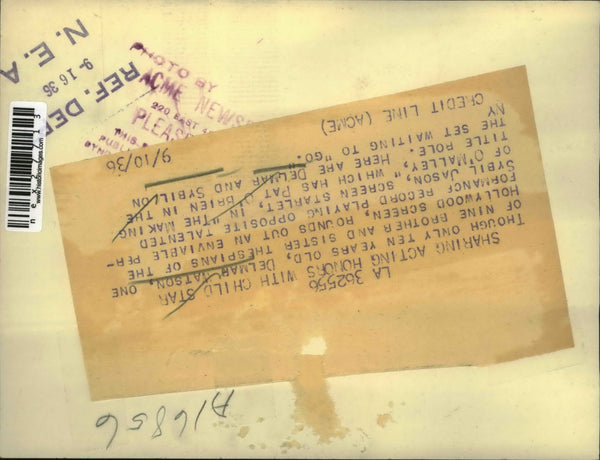 N. E. A
9-16 36
REF. DEP
PHOTO BY
ACME NEWS
220 EAST 4
PLEAS
THIS
PUBLI
LA 362556
SHARING ACTING HONORS WITH CHILD STAR
THOUGH ONLY TEN YEARS OLD, DELMAR WATSON, ONE
OF NINE BROTHER AND SISTER THESPIANS OF THE
HOLLYWOOD SCREEN, ROUNDS OUT AN ENVIABLE PER-
FORMANCE RECORD PLAYING OPPOSITE TALENTED
SYBIL JASON, SCREEN STARLET, IN "THE MAKING
OF O'MALLEY," WHICH HAS PAT O'BRIEN IN THE
TITLE ROLE. HERE ARE DELMAR AND SYBIL ON
THE SET WAITING TO "GO."
NY
CREDIT LINE (ACME) 9/10/36
A16856
www.historicimages.com